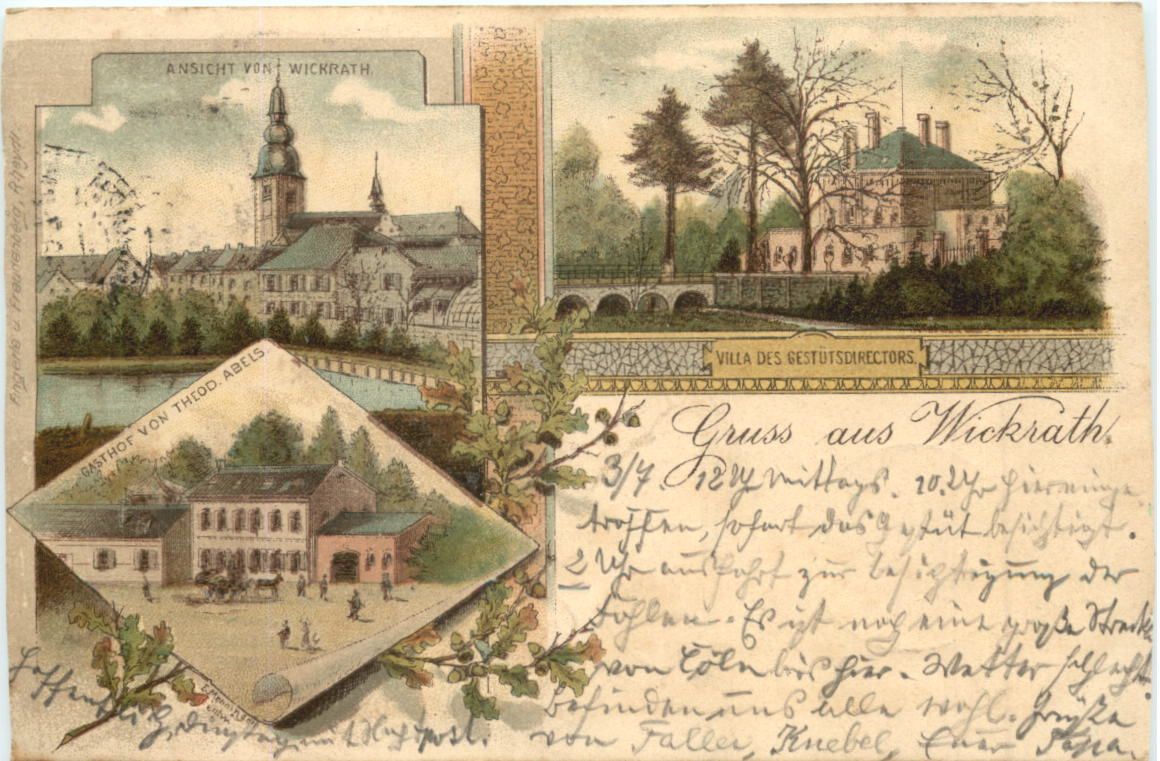 ANSICHT VON WICKRATH.
VILLA DES GESTÜTSDIRECTORS.
GASTHOF VON THEOD. ABELS.
Gruss aus Wickrath.
3/7. 12 Uhr Mittags. 10.Uhr hier einge
troffen, sofort das Gestüt besichtigt.
2 Uhr ausfahrt zur besichtigung der
Fohlen. Es ist noch eine große Strecke
von Cöln bis hier. Wetter schlecht.
befinden uns alle wohl. Grüße
von Faller, Knebel, Euer Papa.
Hoffentlich Dinstag mit